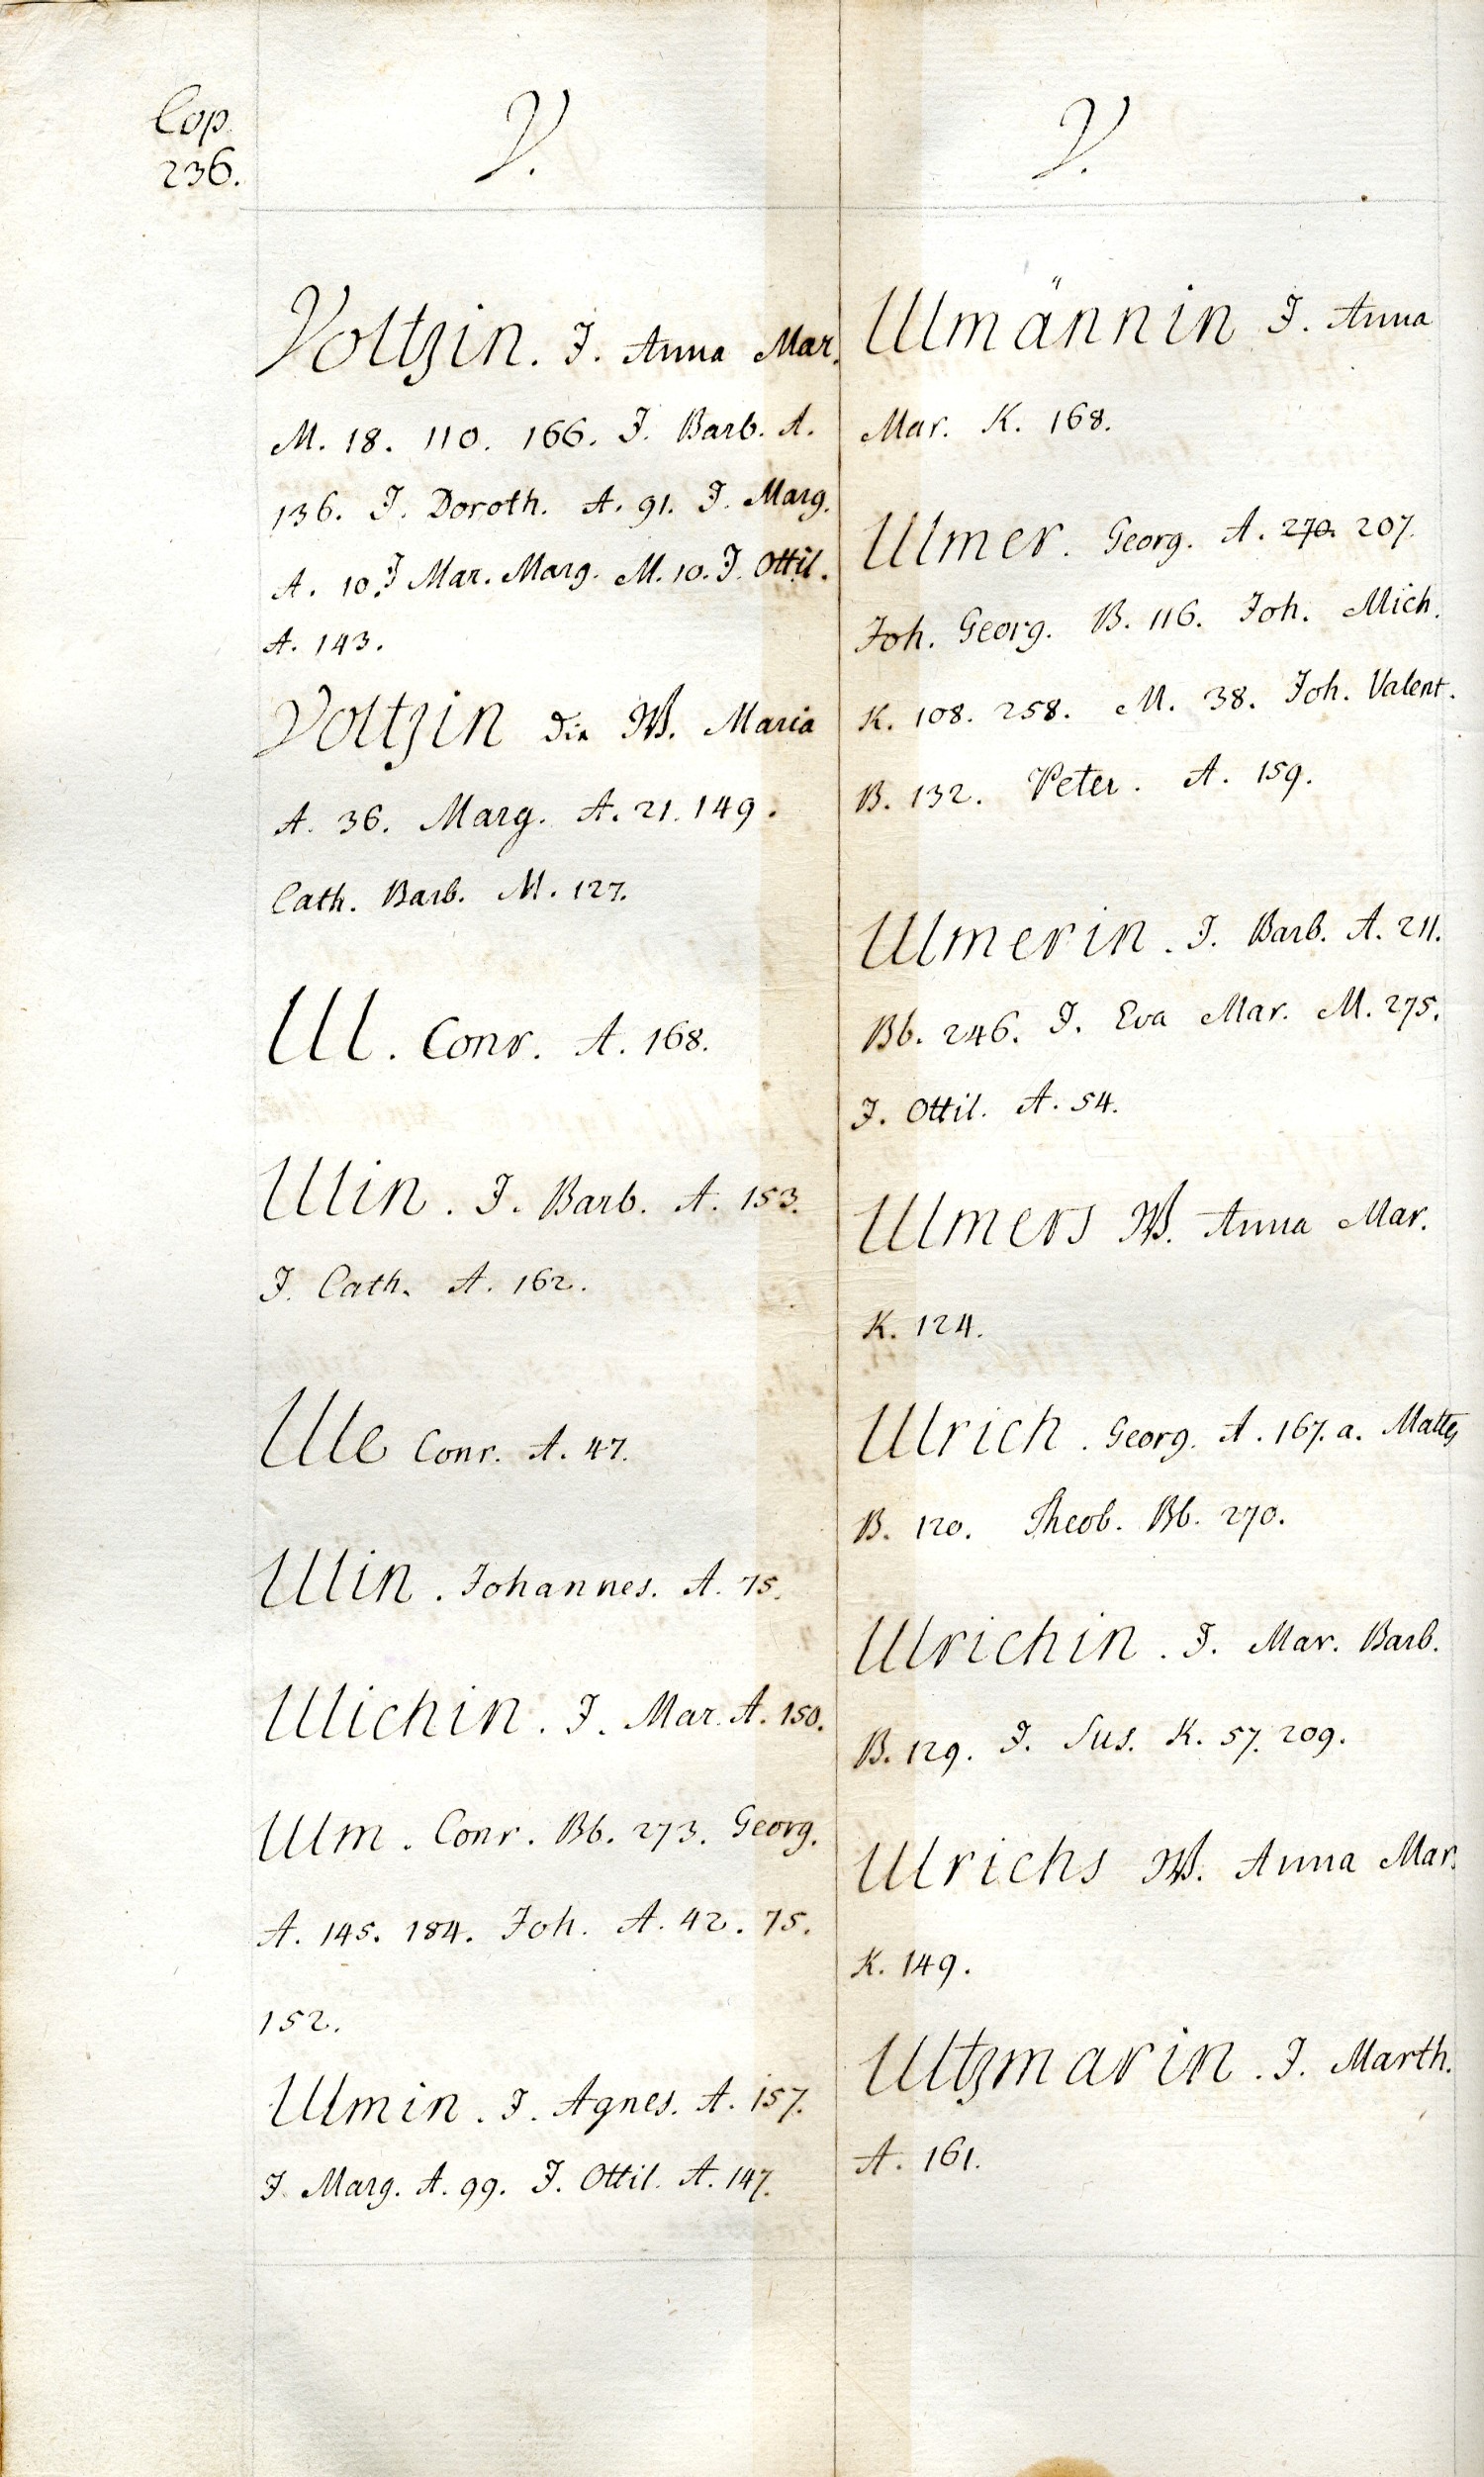 Cop.
236.
V.
Voltzin. J. Anna Mar.
M. 18. 110. 166. J. Barb. A.
136. J. Doroth. A. 91. J. Marg.
A. 10. J Mar. Marg. M. 10. J. Ottil.
A. 143.
Voltzin die W. Maria
A. 36. Marg. A. 21. 149.
Cath. Barb. M. 127.
Ul. Conr. A. 168.
Ulin. J. Barb. A. 153.
J. Cath. A. 162.
Ule Conr. A. 47.
Ulin. Johannes. A. 75.
Ulichin. J. Mar. A. 150.
Ulm. Conr. Bb. 273. Georg.
A. 145. 184. Joh. A. 42. 75.
152.
Ulmin. J. Agnes. A. 157.
J. Marg. A. 99. J. Ottil. A. 147.
V.
Ulmännin J. Anna
Mar. K. 168.
Ulmer. Georg. A. 270. 207.
Joh. Georg. B. 116. Joh. Mich.
K. 108. 258. M. 38. Joh. Valent.
B. 132. Peter. A. 159.
Ulmerin. J. Barb. A. 211.
Bb. 246. J. Eva Mar. M. 275.
J. Ottil. A. 54.
Ulmers W. Anna Mar.
K. 124.
Ulrich. Georg. A. 167. a. Matts
B. 120. Theob. Bb. 270.
Ulrichin. J. Mar. Barb.
B. 129. J. Sus. K. 57. 209.
Ulrichs W. Anna Mar.
K. 149.
Ultzmarin. J. Marth.
A. 161.